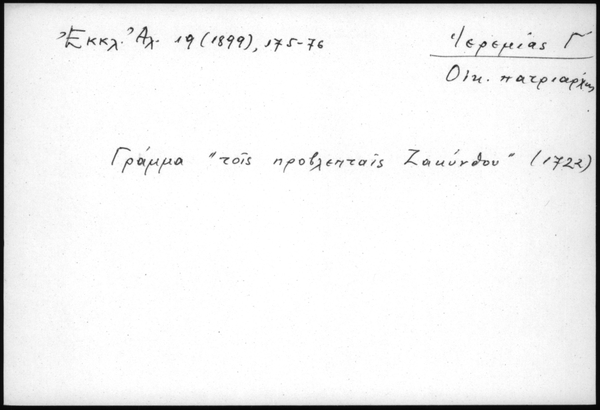 Ἐκκλ. Ἀλ. 19 (1899), 175-76
Ἱερεμίας Γ΄
Οἰκ. πατριάρχης
Γράμμα "τοῖς προβλεπταῖς Ζακύνθου" (1722)